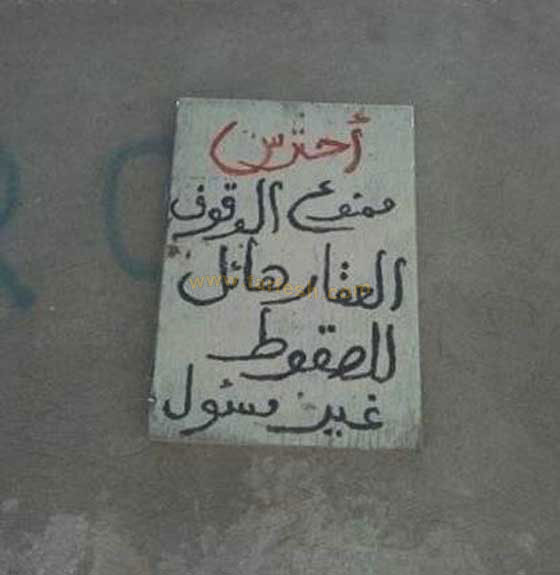 أحترس
ممنوع الوقوف
العقار هائل
للصقوط
غير مسئول